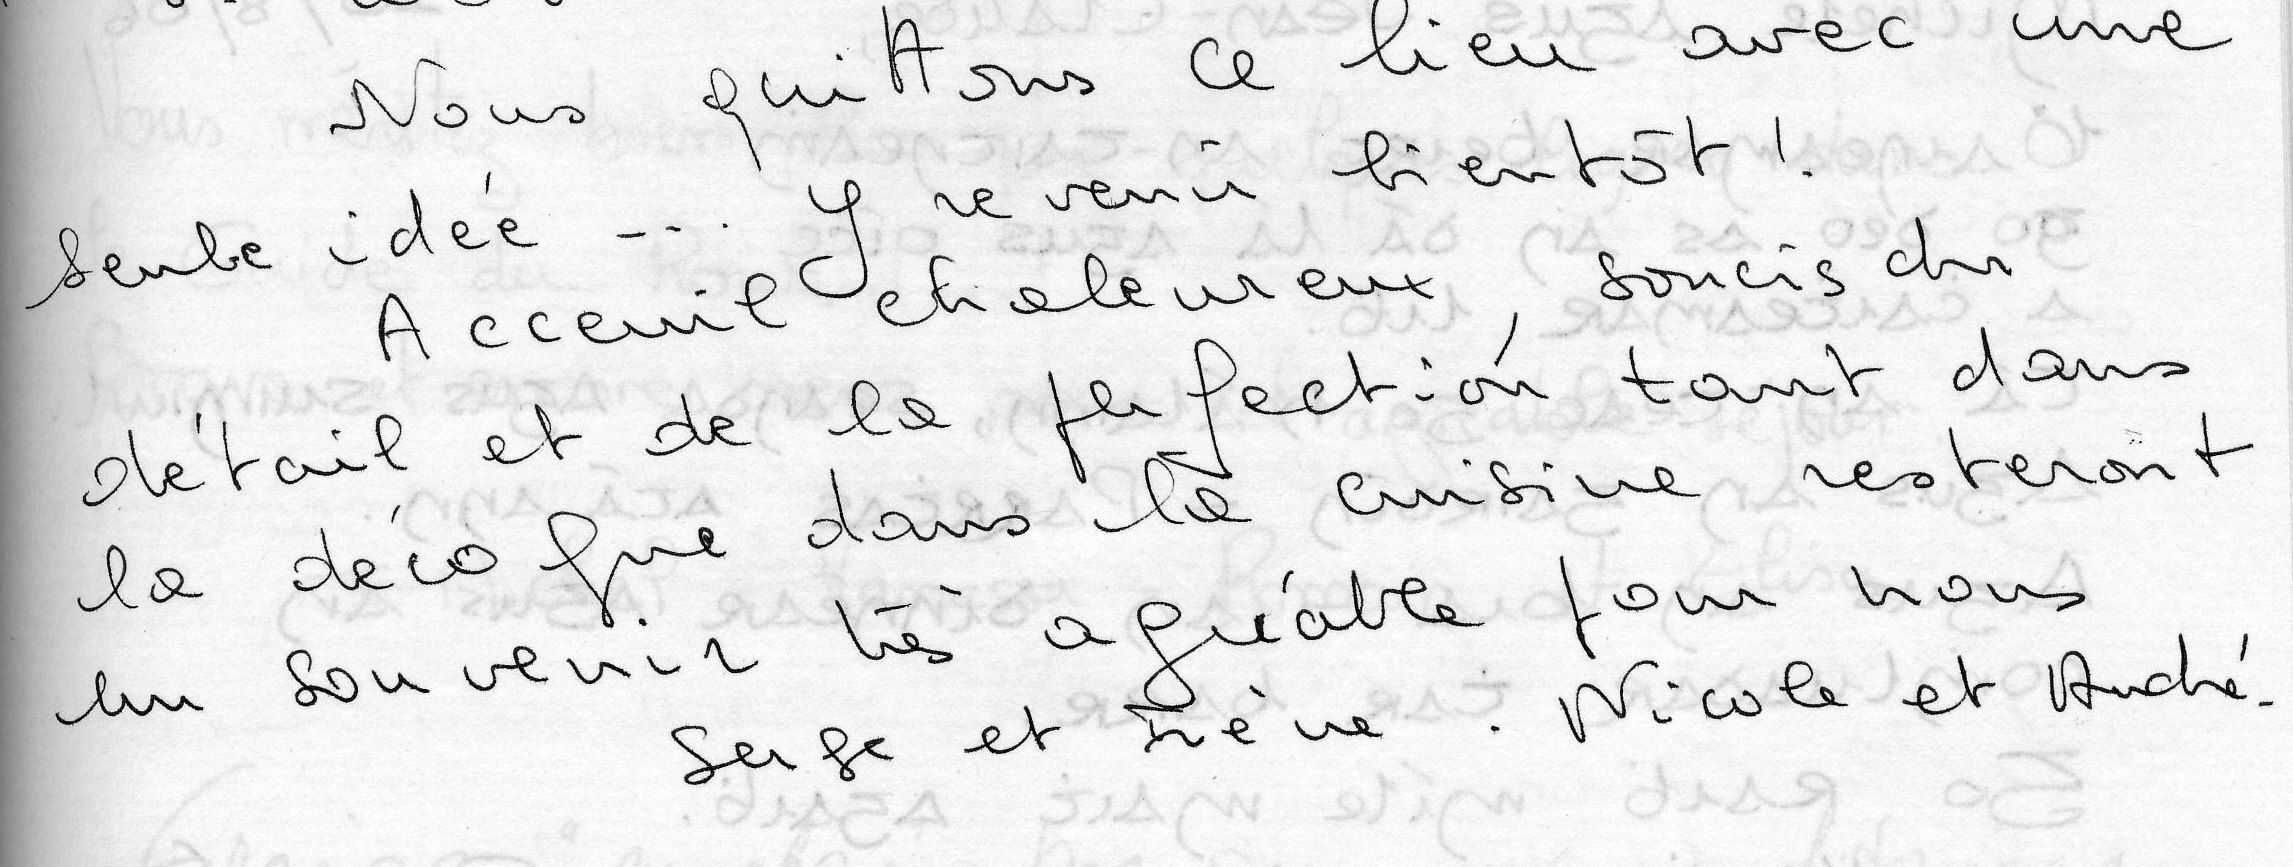 Nous quittons ce lieu avec une
seule idée ... Y revenir bientôt !
Acceuil chaleureux, soucis du
détail et de la perfection tant dans
la déco que dans la cuisine resteront
un souvenir très agréable pour nous
Serge et Irène . Nicole et André.